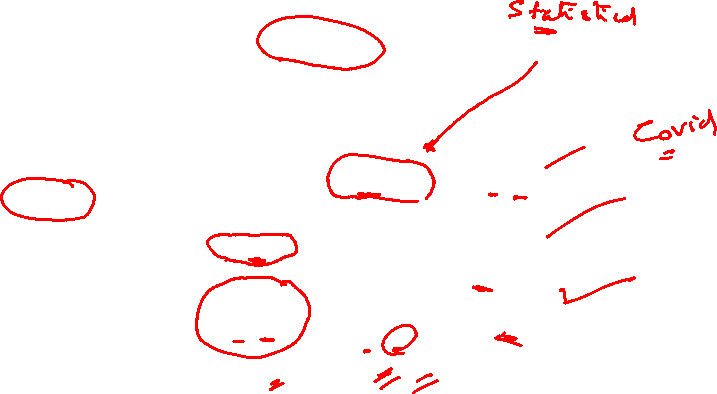 Statistical
Covid